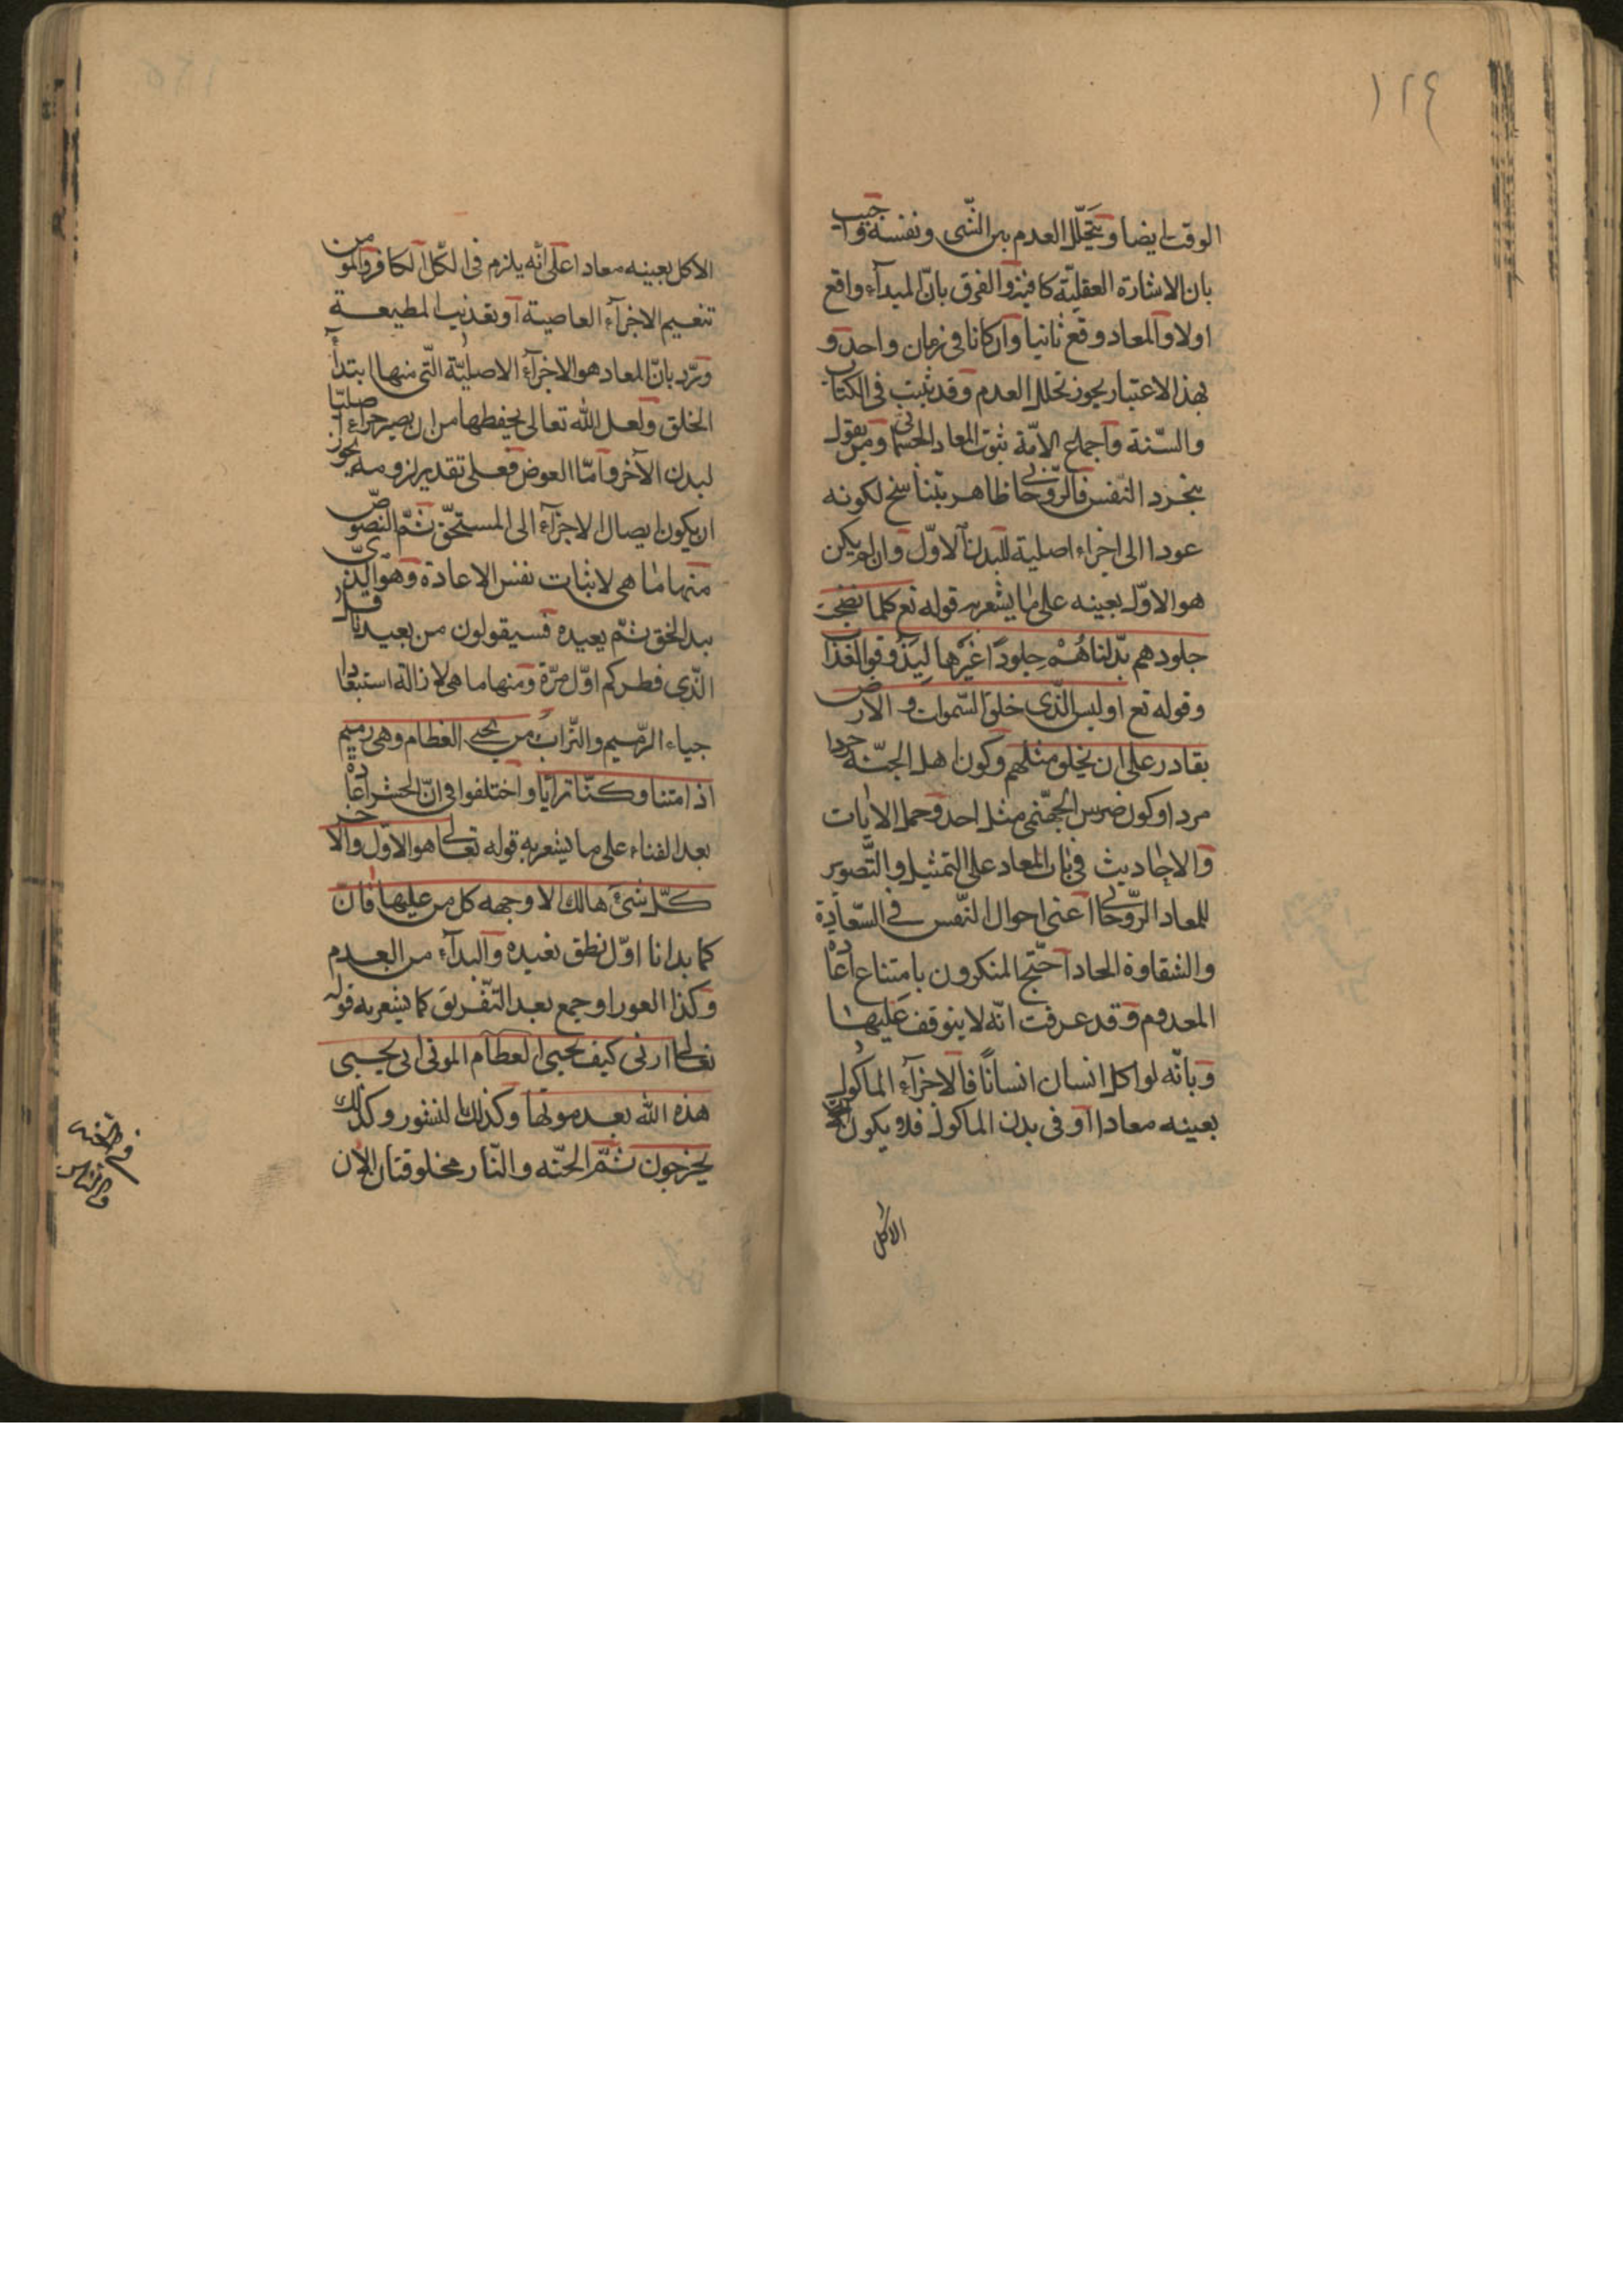 ١٢٤
الوقت ايضا ويتخلل العدم بين الشّى ونفسه واجيب
بان الاشارة العقليّة كافية والفرق بانّ المبدآء واقع
اولا والمعاد وقع ثانيا وان كانا فى زمان واحد و
بهذا الاعتبار يجوز تخلل العدم وقد ثبت فى الكتاب
والسّنة واجماع الامّة ثبوت المعاد الجسمانى ومن يقول
بتجرد النّفس فالرّوحانى ظاهر بتناسخ لكونه
عودا الى اجزاء اصلية للبدن الاوّل وان لم يكن
هو الاوّل بعينه على ما يشعر به قوله تع كلما نضجت
جلودهم بدّلناهُمْ جلودًا غيَرها لِيَذوقوا العذاب
وقوله تع اوليس الّذى خلق السّموات والارض
بقادر على ان يخلق مثلهم وكون اهل الجنّة جردا
مردا وكون ضرس الجهنّمى مثل احد وحمل الايات
والاحاديث فى باب المعاد على التمثيل والتّصوير
للمعاد الرّوحانى اعنى احوال النّفس فى السّعادة
والشقاوة الحاد احتّج المنكرون بامتناع اعادة
المعدوم وقد عرفت انّه لا يتوقف عَليها
وبانّه لو اكل انسان انسانًا فالاجزآء الماكولة
بعينه معادا او فى بدن الماكول فلا يكون
الاكل
الاكل بعينه معادا على انّه يلزم فى اكل الكافر المؤمن
تنعيم الاجزآء العاصية او تعذيب المطيعة
وردّ بانّ المعاد هو الاجزآء الاصليّة الّتى منها ابتدآء
الخلق ولعل الله تعالى يحفظها من ان يصير جزاء اصليّا
لبدن الآخر وامّا العوض فعلى تقدير لزومه يجوز
ان يكون ايصال الاجزآء الى المستحقّ ثمّ النصوصّ
منها ما هى لاثبات نفس الاعادة وهو الّذى
يبدا الخق ثمّ يعيده فسيقولون من يعيدنا قل
الّذى فطركم اوّل مرّة ومنها ما هى لازالة استبعاد
جياء الرّميم والتّراب من يحيى العظام وهى رميم
اذا متنا وكنّا ترابًا واختلفوا فى انّ الحشر اعادة
بعد الفناء على ما يشعر به قوله تعالى هو الاوّل والاخر
كلّ شىءٍ هالك الا وجهه كل من عليها فان
كما بدانا اوّل نطق نعيده والبدآء من العدم
وكذا العود او جمع بعد التّفريق كما يشعر به قوله
تعالى ارنى كيف تحيى العظام الموتى انى يحيى
هذه الله بعد موتها وكذلك النشور وكذلك
يخرجون ثمّ الجنّه والنّار مخلوقتان الان
فى الجنه
والنار